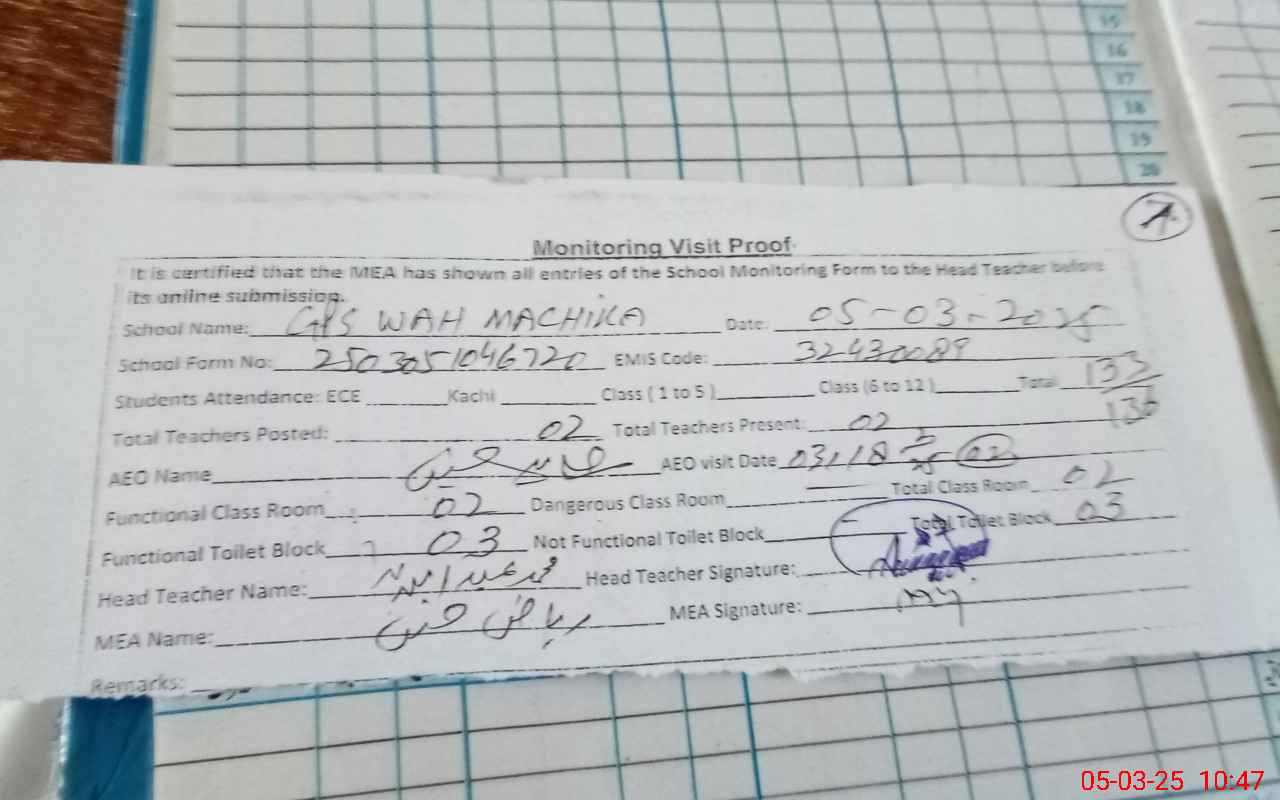 15
16
17
18
19
20
Monitoring Visit Proof
It is certified that the MEA has shown all entries of the School Monitoring Form to the Head Teacher before
its online submission.
School Name: GPS WAH MACHIKA Date: 05-03-2025
School Form No: 2503051046720 EMIS Code: 32430089
Students Attendance: ECE Kachi Class ( 1 to 5 ) Class (6 to 12 ) Total 133
Total Teachers Posted: 02 Total Teachers Present: 02
AEO Name AEO visit Date
Functional Class Room 02 Dangerous Class Room Total Class Room 02
Functional Toilet Block 03 Not Functional Toilet Block Total Toilet Block 03
Head Teacher Name: Head Teacher Signature:
MEA Name: ریاض حسین MEA Signature:
Remarks:
05-03-25 10:47